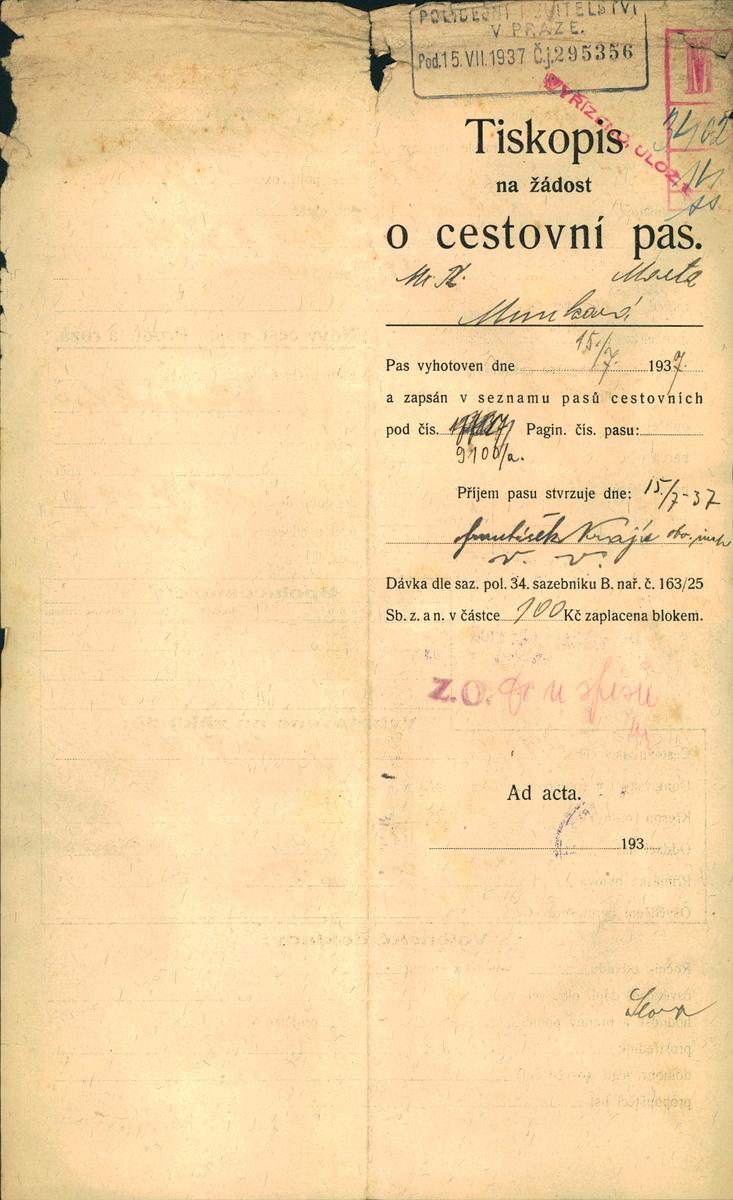 POLICEJNÍ ŘEDITELSTVÍ
V PRAZE.
Pod. 15. VII. 1937 Č.j. 295356
VYŘÍZENO, ULOŽIT
3402
14
ss
Tiskopis
na žádost
o cestovní pas.
Marta
Munková
Pas vyhotoven dne 15./7. 1937
a zapsán v seznamu pasů cestovních
pod čís. Pagin. čís. pasu:
9100/a.
Příjem pasu stvrzuje dne: 15./7-37
František
v. v.
Dávka dle saz. pol. 34. sazebníku B. nař. č. 163/25
Sb. z. a n. v částce 100 Kč zaplacena blokem.
Z.O. u spisů
Ad acta.
193